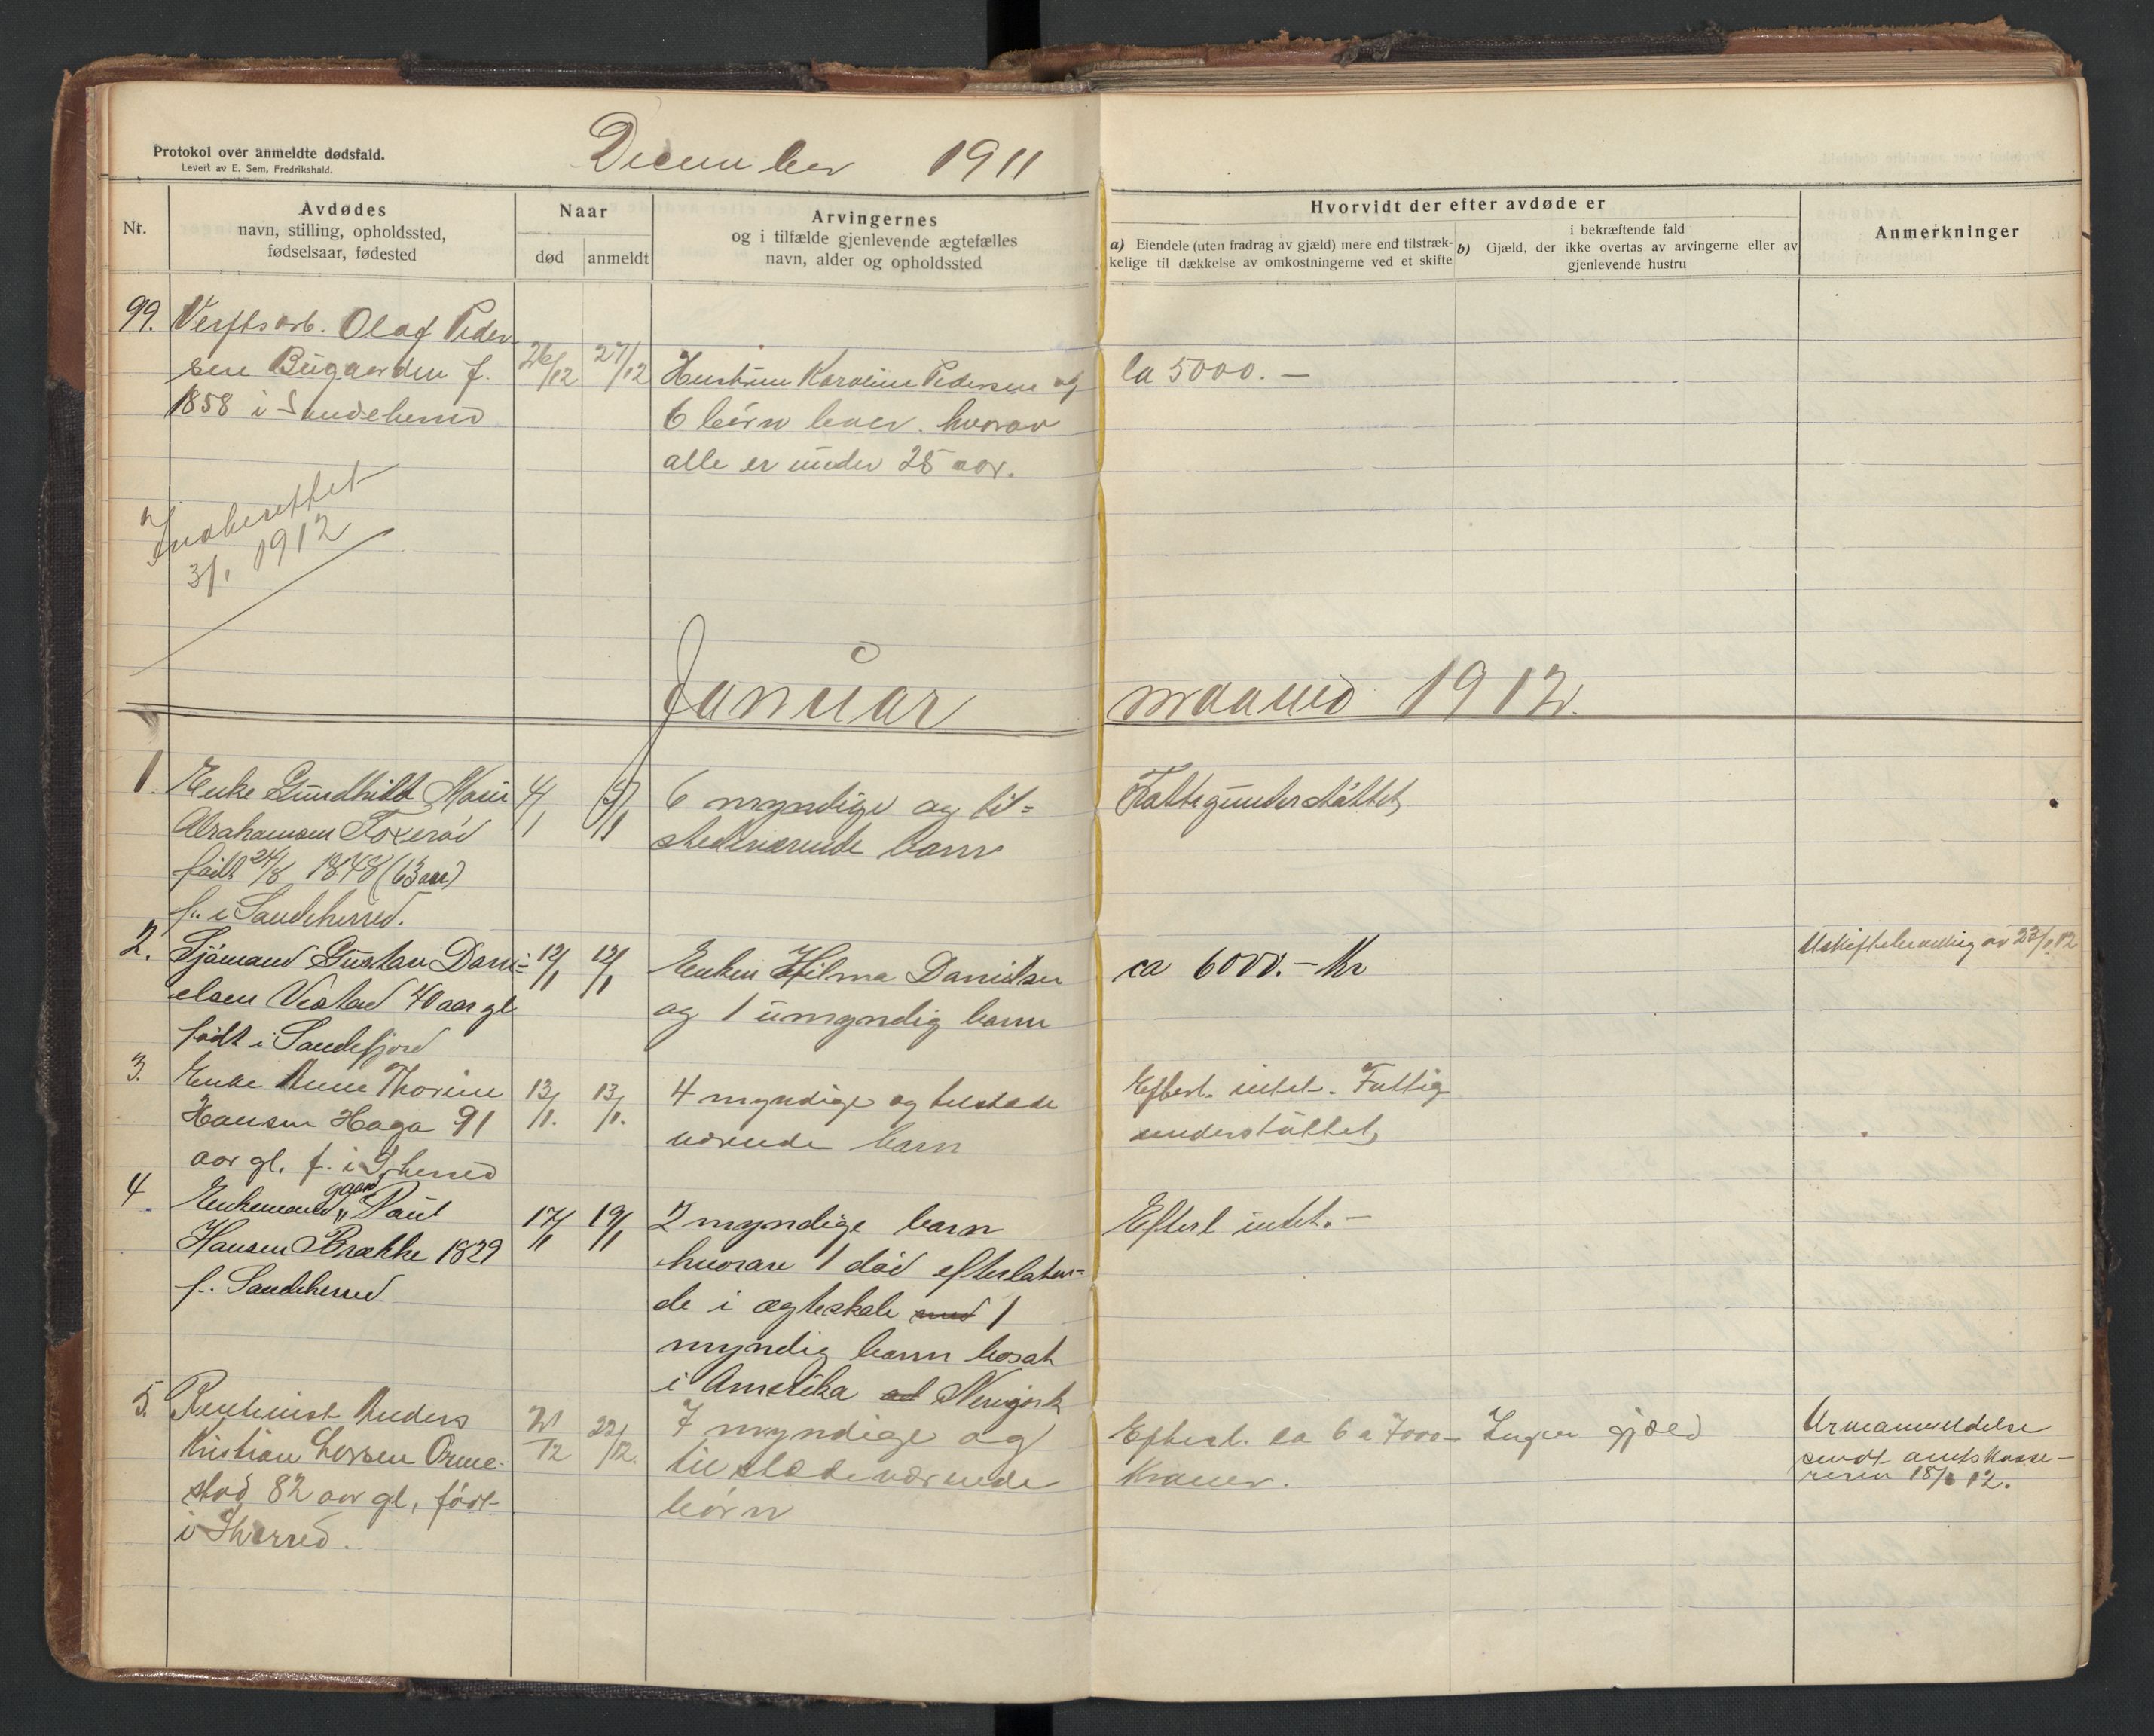 Protokol over anmeldte dødsfald.
Levert av E. Sem, Fredrikshald.
December 1911
Nr.
Avdødes
navn, stilling, opholdssted,
fødselsaar, fødested
Naar
død
anmeldt
Arvingernes
og i tilfælde gjenlevende ægtefælles
navn, alder og opholdssted
Hvorvidt der efter avdøde er
a) Eiendele (uten fradrag av gjæld) mere end tilstræk-
kelige til dækkelse av omkostningerne ved et skifte
i bekræftende fald
b) Gjæld, der ikke overtas av arvingerne eller av
gjenlevende hustru
Anmerkninger
99. Verftsarb. Olaf Peder-
sen Bugaarden f.
1858 i Sandeherred
26/12
27/12
Hustruen Karoline Pedersen og
6 börn lever. hvorav
alle er under 25 aar.
ca 5000.—
Indberettet
3/1 1912
Januar maaned 1912.
1. Enke Gundhild Marie
Abrahamsen Fokserød
født 24/8 1848 (63 aar)
f. i Sandeherred.
4/1
5/1
6 myndige og til=
stedeværende barn
Fattigunderstöttet
2. Sjömand Gustav Dani=
elsen Vestad 40 aar gl
født i Sandefjord
12/1
12/1
Enken Hilma Danielsen
og 1 umyndig barn
ca 6000.— Kr
Uskiftebevilling av 23/1 12
3. Enke Anne Thorine
Hansen Haga 91
aar gl. f. i Sherred
13/1.
13/1.
4 myndige og tilstede
værende barn
Efterl. intet. Fattig
understöttet
4 Enkemand gaard Paul
Hansen Brække 1829
f. Sandeherred
17/1
19/1
2 myndige barn
hvorav 1 död efterlaten=
de i ægteskab med 1
myndig barn bosat
i Amerika ad Newyork
Efterl intet.—
5. Rentenist Anders
Kristian Larsen Orme-
stad 82 aar gl, född
i Sherred.
21/12
22/12.
7 myndige og
tilstedeværende
börn
Efterl. ca 6 a 7000—
Kroner.
Ingen gjæld
Urneanmeldelse
sendt amtskasse-
reren 18/1 12.